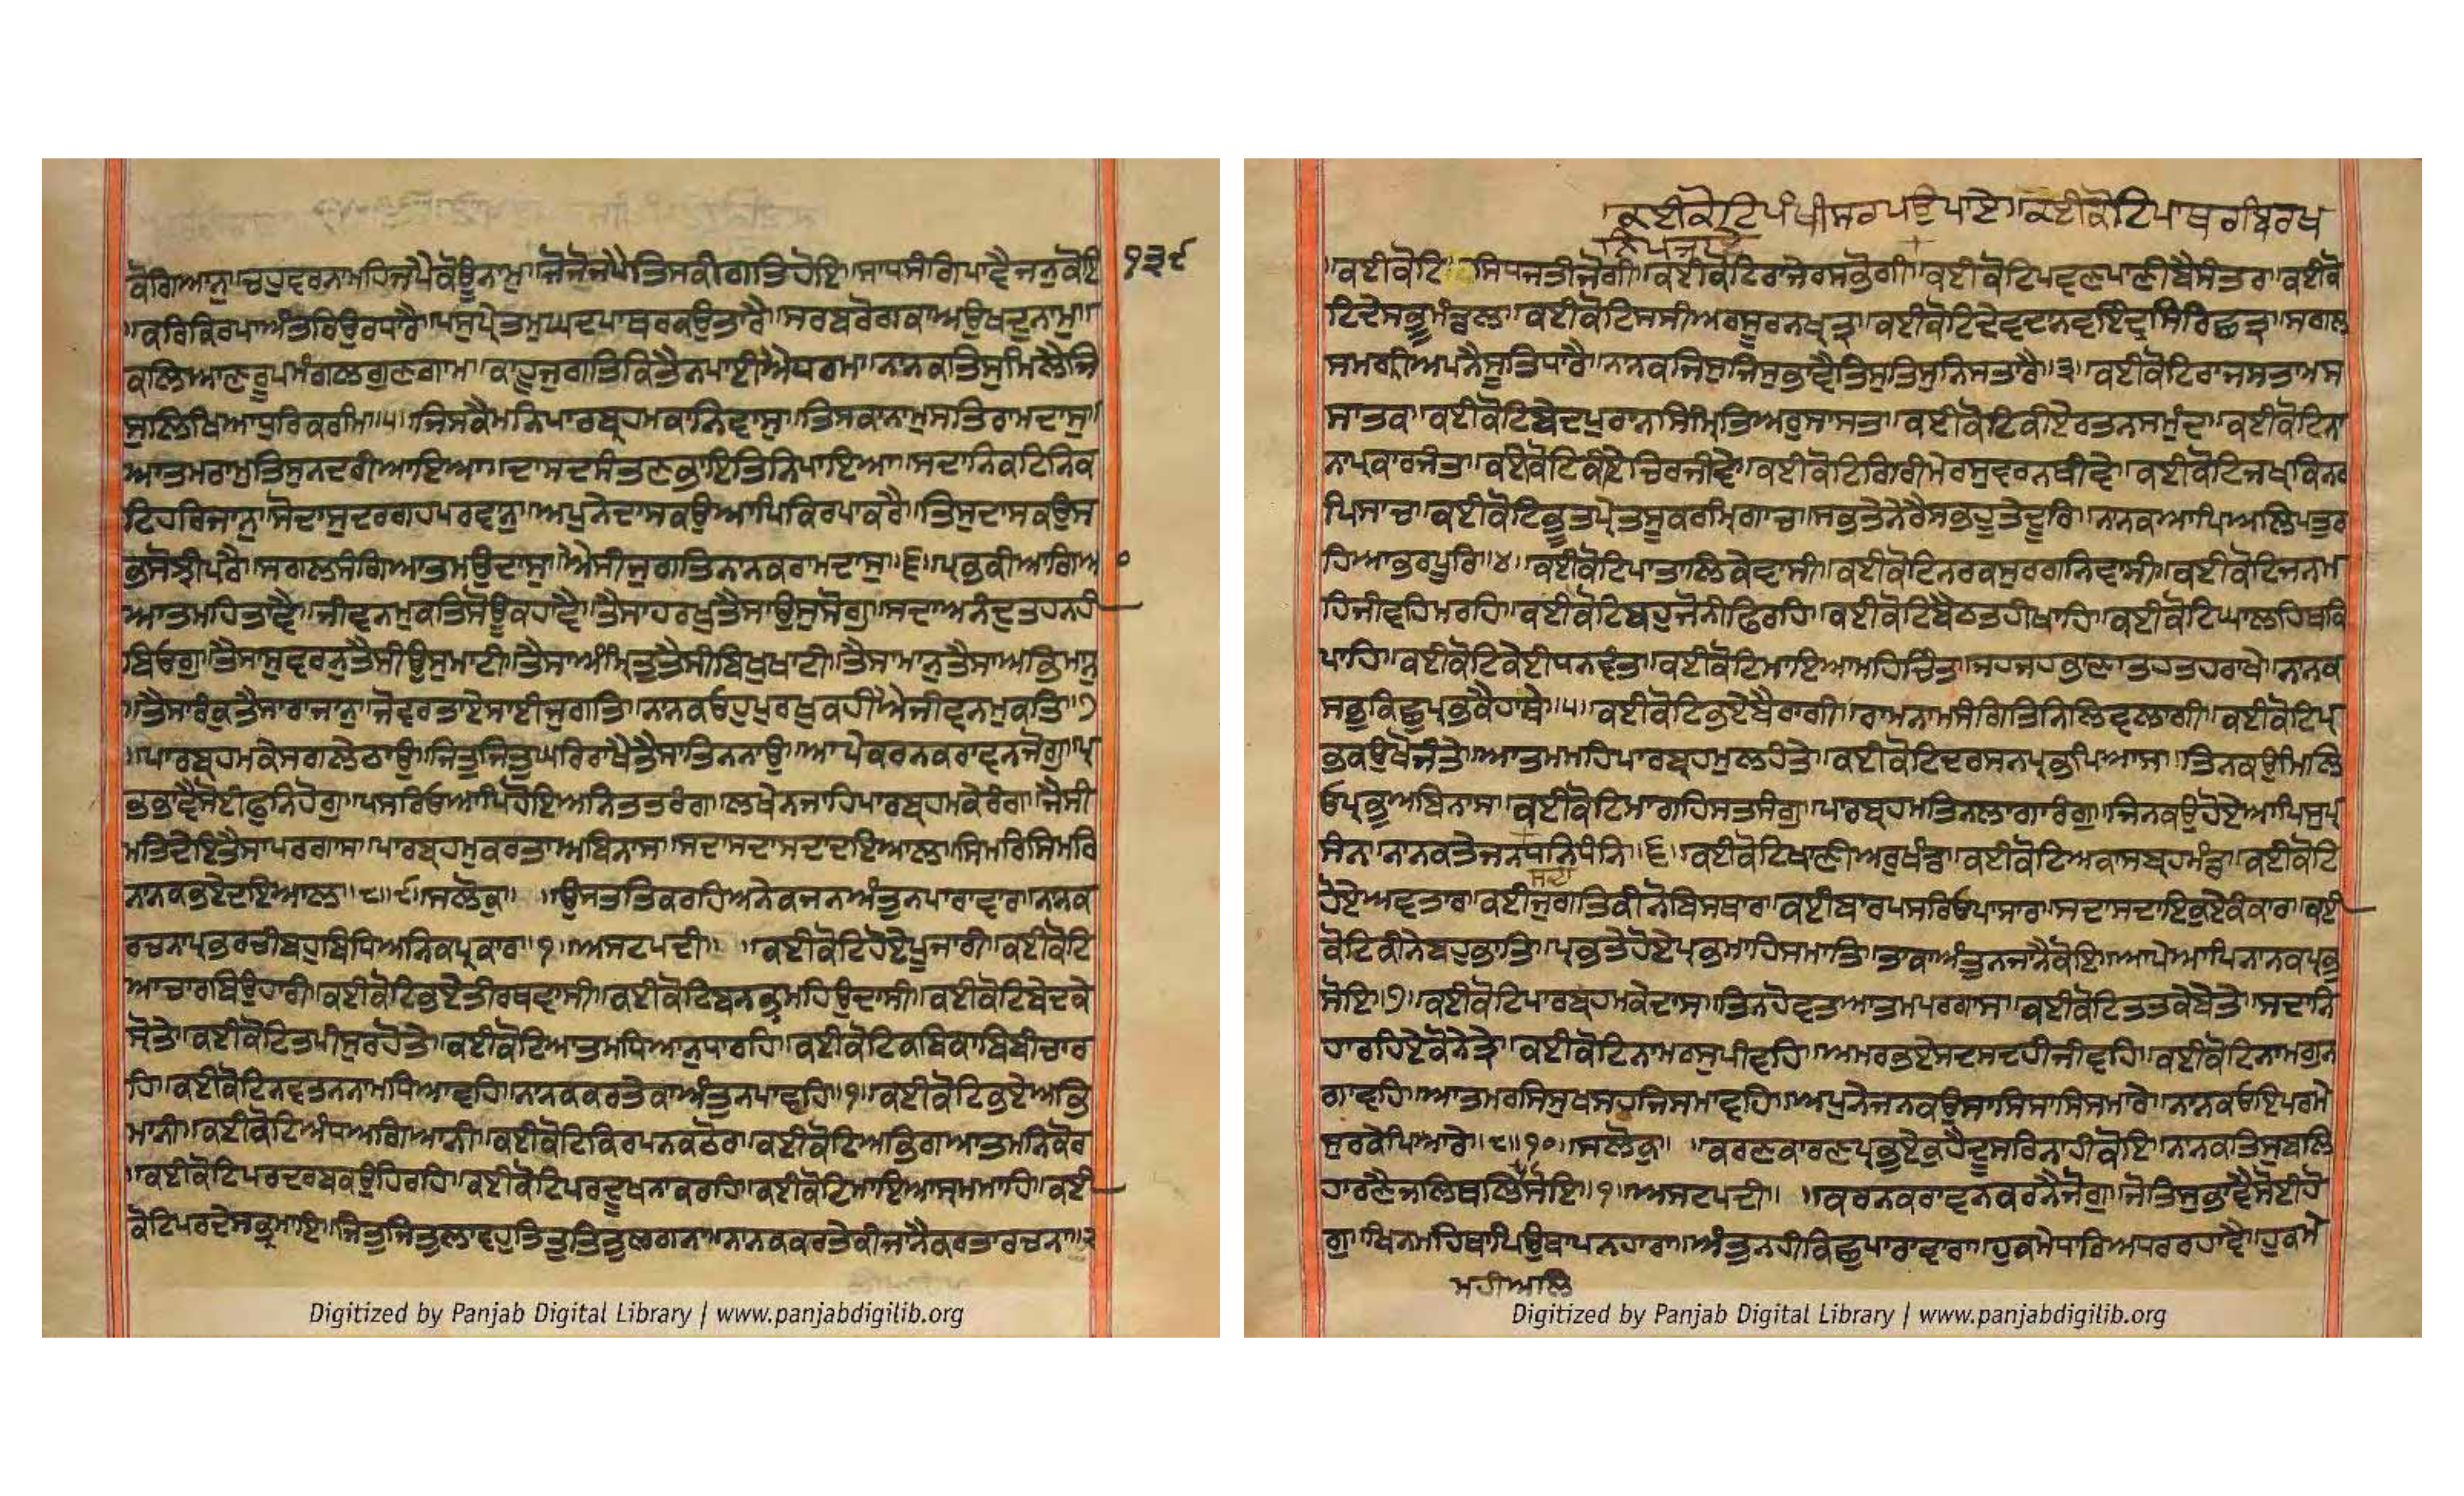 ਕੋਗਿਆਨੁ॥ਚਹੁਵਰਨਾਮਹਿਜਪੈਕੋਊਨਾਮੁ॥ਜੋਜੋਜਪੈਤਿਸਕੀਗਤਿਹੋਇ॥ਸਾਧਸੰਗਿਪਾਵੈਜਨੁਕੋਇ
੧੩੯
॥ਕਰਿਕਿਰਪਾਅੰਤਰਿਉਰਧਾਰੈ॥ਪਸੁਪ੍ਰੇਤਮੁਘਦਪਾਥਰਕਉਤਾਰੈ॥ਸਰਬਰੋਗਕਾਅਉਖਦੁਨਾਮੁ॥
ਕਲਿਆਣਰੂਪਮੰਗਲਗੁਣਗਾਮ॥ਕਾਹੂਜੁਗਤਿਕਿਤੈਨਪਾਈਐਧਰਮਿ॥ਨਾਨਕਤਿਸੁਮਿਲੈਜਿ
ਸੁਲਿਖਿਆਧੁਰਿਕਰਮਿ॥੫॥ਜਿਸਕੈਮਨਿਪਾਰਬ੍ਰਹਮਕਾਨਿਵਾਸੁ॥ਤਿਸਕਾਨਾਮੁਸਤਿਰਾਮਦਾਸੁ॥
ਆਤਮਰਾਮੁਤਿਸੁਨਦਰੀਆਇਆ॥ਦਾਸਦਸੰਤਣਭਾਇਤਿਨਿਪਾਇਆ॥ਸਦਾਨਿਕਟਿਨਿਕ
ਟਿਹਰਿਜਾਨੁ॥ਸੋਦਾਸੁਦਰਗਹਪਰਵਾਨੁ॥ਅਪੁਨੇਦਾਸਕਉਆਪਿਕਿਰਪਾਕਰੈ॥ਤਿਸੁਦਾਸਕਉਸ
ਭਸੋਝੀਪਰੈ॥ਸਗਲਸੰਗਿਆਤਮਉਦਾਸੁ॥ਐਸੀਜੁਗਤਿਨਾਨਕਰਾਮਦਾਸੁ॥੬॥ਪ੍ਰਭਕੀਆਗਿਆ
ਆਤਮਹਿਤਾਵੈ॥ਜੀਵਨਮੁਕਤਿਸੋਊਕਹਾਵੈ॥ਤੈਸਾਹਰਖੁਤੈਸਾਉਸੁਸੋਗੁ॥ਸਦਾਅਨੰਦੁਤਹਨਹੀ
ਬਿਓਗੁ॥ਤੈਸਾਸੁਵਰਨੁਤੈਸੀਉਸੁਮਾਟੀ॥ਤੈਸਾਅੰਮ੍ਰਿਤੁਤੈਸੀਬਿਖੁਖਾਟੀ॥ਤੈਸਾਮਾਨੁਤੈਸਾਅਭਿਮਾਨੁ
॥ਤੈਸਾਰੰਕੁਤੈਸਾਰਾਜਾਨੁ॥ਜੋਵਰਤਾਏਸਾਈਜੁਗਤਿ॥ਨਾਨਕਓਹੁਪੁਰਖੁਕਹੀਐਜੀਵਨਮੁਕਤਿ॥੭
॥ਪਾਰਬ੍ਰਹਮਕੇਸਗਲੇਠਾਉ॥ਜਿਤੁਜਿਤੁਘਰਿਰਾਖੈਤੈਸਾਤਿਨਨਾਉ॥ਆਪੇਕਰਨਕਰਾਵਨਜੋਗੁ॥ਪ੍ਰ
ਭਭਾਵੈਸੋਈਫੁਨਿਹੋਗੁ॥ਪਸਰਿਓਆਪਿਹੋਇਅਨਿਤਤਰੰਗ॥ਲਖੇਨਜਾਹਿਪਾਰਬ੍ਰਹਮਕੇਰੰਗ॥ਜੈਸੀ
ਮਤਿਦੇਇਤੈਸਾਪਰਗਾਸ॥ਪਾਰਬ੍ਰਹਮੁਕਰਤਾਅਬਿਨਾਸ॥ਸਦਾਸਦਾਸਦਾਦਇਆਲ॥ਸਿਮਰਿਸਿਮਰਿ
ਨਾਨਕਭਏਦਇਆਲ॥੮॥੯॥ਸਲੋਕੁ॥ ॥ਉਸਤਤਿਕਰਹਿਅਨੇਕਜਨਅੰਤੁਨਪਾਰਾਵਾਰ॥ਨਾਨਕ
ਰਚਨਾਪ੍ਰਭਰਚੀਬਹੁਬਿਧਿਅਨਿਕਪ੍ਰਕਾਰ॥੧॥ਅਸਟਪਦੀ॥ ॥ਕਈਕੋਟਿਹੋਏਪੂਜਾਰੀ॥ਕਈਕੋਟਿ
ਆਚਾਰਬਿਉਹਾਰੀ॥ਕਈਕੋਟਿਭਏਤੀਰਥਵਾਸੀ॥ਕਈਕੋਟਿਬਨਭ੍ਰਮਹਿਉਦਾਸੀ॥ਕਈਕੋਟਿਬੇਦਕੇ
ਸ੍ਰੋਤੇ॥ਕਈਕੋਟਿਤਪੀਸੁਰਹੋਤੇ॥ਕਈਕੋਟਿਆਤਮਧਿਆਨੁਧਾਰਹਿ॥ਕਈਕੋਟਿਕਬਿਕਾਬਿਬੀਚਾਰ
ਹਿ॥ਕਈਕੋਟਿਨਵਤਨਨਾਮਧਿਆਵਹਿ॥ਨਾਨਕਕਰਤੇਕਾਅੰਤੁਨਪਾਵਹਿ॥੧॥ਕਈਕੋਟਿਭਏਅਭਿ
ਮਾਨੀ॥ਕਈਕੋਟਿਅੰਧਅਗਿਆਨੀ॥ਕਈਕੋਟਿਕਿਰਪਨਕਠੋਰ॥ਕਈਕੋਟਿਅਭਿਗਆਤਮਨਿਕੋਰ
॥ਕਈਕੋਟਿਪਰਦਰਬਕਉਹਿਰਹਿ॥ਕਈਕੋਟਿਪਰਦੂਖਨਾਕਰਹਿ॥ਕਈਕੋਟਿਮਾਇਆਸ੍ਰਮਮਾਹਿ॥ਕਈ
ਕੋਟਿਪਰਦੇਸਭ੍ਰਮਾਇ॥ਜਿਤੁਜਿਤੁਲਾਵਹੁਤਿਤੁਤਿਤੁਲਗਨਾ॥ਨਾਨਕਕਰਤੇਕੀਜਾਨੈਕਰਤਾਰਚਨਾ॥੨
Digitized by Panjab Digital Library | www.panjabdigilib.org
ਕਈਕੋਟਿਪੰਖੀਸਰਪਉਪਾਏ॥ਕਈਕੋਟਿਪਾਥਰਬਿਰਖ
ਨਿਪਜਾਏ
॥ਕਈਕੋਟਿਸਿਧਜਤੀਜੋਗੀ॥ਕਈਕੋਟਿਰਾਜੇਰਸਭੋਗੀ॥ਕਈਕੋਟਿਪਵਣਪਾਣੀਬੈਸੰਤਰ॥ਕਈਕੋ
ਟਿਦੇਸਭੂਮੰਡਲ॥ਕਈਕੋਟਿਸਸੀਅਰਸੂਰਨਖ੍ਯਤ੍ਰ॥ਕਈਕੋਟਿਦੇਵਦਾਨਵਇੰਦ੍ਰਸਿਰਿਛਤ੍ਰ॥ਸਗਲ
ਸਮਗ੍ਰੀਅਪਨੈਸੂਤਿਧਾਰੈ॥ਨਾਨਕਜਿਸੁਜਿਸੁਭਾਵੈਤਿਸੁਤਿਸੁਨਿਸਤਾਰੈ॥੩॥ਕਈਕੋਟਿਰਾਜਸਤਾਮਸ
ਸਾਤਕ॥ਕਈਕੋਟਿਬੇਦਪੁਰਾਨਸਿੰਮ੍ਰਿਤਿਅਰੁਸਾਸਤ॥ਕਈਕੋਟਿਕੀਏਰਤਨਸਮੁੰਦ॥ਕਈਕੋਟਿਨਾ
ਨਾਪ੍ਰਕਾਰਜੰਤ॥ਕਈਕੋਟਿਕੀਏਚਿਰਜੀਵੇ॥ਕਈਕੋਟਿਗਿਰੀਮੇਰਸੁਵਰਨਥੀਵੇ॥ਕਈਕੋਟਿਜਖ੍ਯਕਿੰਨਰ
ਪਿਸਾਚ॥ਕਈਕੋਟਿਭੂਤਪ੍ਰੇਤਸੂਕਰਮ੍ਰਿਗਾਚ॥ਸਭਤੇਨੇਰੈਸਭਹੂਤੇਦੂਰਿ॥ਨਾਨਕਆਪਿਅਲਿਪਤੁਰ
ਹਿਆਭਰਪੂਰਿ॥੪॥ਕਈਕੋਟਿਪਾਤਾਲਿਕੇਵਾਸੀ॥ਕਈਕੋਟਿਨਰਕਸੁਰਗਨਿਵਾਸੀ॥ਕਈਕੋਟਿਜਨਮ
ਹਿਜੀਵਹਿਮਰਹਿ॥ਕਈਕੋਟਿਬਹੁਜੋਨੀਫਿਰਹਿ॥ਕਈਕੋਟਿਬੈਠਤਹੀਖਾਹਿ॥ਕਈਕੋਟਿਘਾਲਹਿਥਕਿ
ਪਾਹਿ॥ਕਈਕੋਟਿਕੇਈਧਨਵੰਤ॥ਕਈਕੋਟਿਮਾਇਆਮਹਿਚਿੰਤ॥ਜਹਜਹਭਾਣਾਤਹਤਹਰਾਖੇ॥ਨਾਨਕ
ਸਭੁਕਿਛੁਪ੍ਰਭਕੈਹਾਥੇ॥੫॥ਕਈਕੋਟਿਭਏਬੈਰਾਗੀ॥ਰਾਮਨਾਮਸੰਗਿਤਿਨਿਲਿਵਲਾਗੀ॥ਕਈਕੋਟਿਪ੍ਰ
ਭਕਉਖੋਜੰਤੇ॥ਆਤਮਮਹਿਪਾਰਬ੍ਰਹਮੁਲਹੰਤੇ॥ਕਈਕੋਟਿਦਰਸਨਪ੍ਰਭਪਿਆਸ॥ਤਿਨਕਉਮਿਲਿ
ਓਪ੍ਰਭੁਅਬਿਨਾਸ॥ਕਈਕੋਟਿਮਾਗਹਿਸਤਸੰਗੁ॥ਪਾਰਬ੍ਰਹਮਤਿਨਲਾਗਾਰੰਗੁ॥ਜਿਨਕਉਹੋਏਆਪਿਸੁਪ੍ਰ
ਸੰਨ॥ਨਾਨਕਤੇਜਨਧਨਿਧੰਨਿ॥੬॥ਕਈਕੋਟਿਖਾਣੀਅਰੁਖੰਡ॥ਕਈਕੋਟਿਅਕਾਸਬ੍ਰਹਮੰਡ॥ਕਈਕੋਟਿ
ਸਦਾ
ਹੋਏਅਵਤਾਰ॥ਕਈਜੁਗਤਿਕੀਨੋਬਿਸਥਾਰ॥ਕਈਬਾਰਪਸਰਿਓਪਾਸਾਰ॥ਸਦਾਸਦਾਇਕੁਏਕੰਕਾਰ॥ਕਈ
ਕੋਟਿਕੀਨੇਬਹੁਭਾਤਿ॥ਪ੍ਰਭਤੇਹੋਏਪ੍ਰਭਮਾਹਿਸਮਾਤਿ॥ਤਾਕਾਅੰਤੁਨਜਾਨੈਕੋਇ॥ਆਪੇਆਪਿਨਾਨਕਪ੍ਰਭੁ
ਸੋਇ॥੭॥ਕਈਕੋਟਿਪਾਰਬ੍ਰਹਮਕੇਦਾਸ॥ਤਿਨਹੋਵਤਆਤਮਪਰਗਾਸ॥ਕਈਕੋਟਿਤਤਕੇਬੇਤੇ॥ਸਦਾਨਿ
ਹਾਰਹਿਏਕੋਨੇਤ੍ਰੇ॥ਕਈਕੋਟਿਨਾਮਰਸੁਪੀਵਹਿ॥ਅਮਰਭਏਸਦਸਦਹੀਜੀਵਹਿ॥ਕਈਕੋਟਿਨਾਮਗੁਨ
ਗਾਵਹਿ॥ਆਤਮਰਸਿਸੁਖਸਹਜਿਸਮਾਵਹਿ॥ਅਪੁਨੇਜਨਕਉਸਾਸਿਸਾਸਿਸਮਾਰੇ॥ਨਾਨਕਓਇਪਰਮੇ
ਸੁਰਕੇਪਿਆਰੇ॥੮॥੧੦॥ਸਲੋਕੁ॥ ॥ਕਰਣਕਾਰਣਪ੍ਰਭੁਏਕੁਹੈਦੂਸਰਿਨਾਹੀਕੋਇ॥ਨਾਨਕਤਿਸੁਬਲਿ
ਹਾਰਣੈਜਲਿਥਲਿਸੋਇ॥੧॥ਅਸਟਪਦੀ॥ ॥ਕਰਨਕਰਾਵਨਕਰਨੈਜੋਗੁ॥ਜੋਤਿਸੁਭਾਵੈਸੋਈਹੋ
ਗੁ॥ਖਿਨਮਹਿਥਾਪਿਉਥਾਪਨਹਾਰਾ॥ਅੰਤੁਨਹੀਕਿਛੁਪਾਰਾਵਾਰਾ॥ਹੁਕਮੇਧਾਰਿਅਧਰਰਹਾਵੈ॥ਹੁਕਮੇ
ਮਹੀਅਲਿ
Digitized by Panjab Digital Library | www.panjabdigilib.org